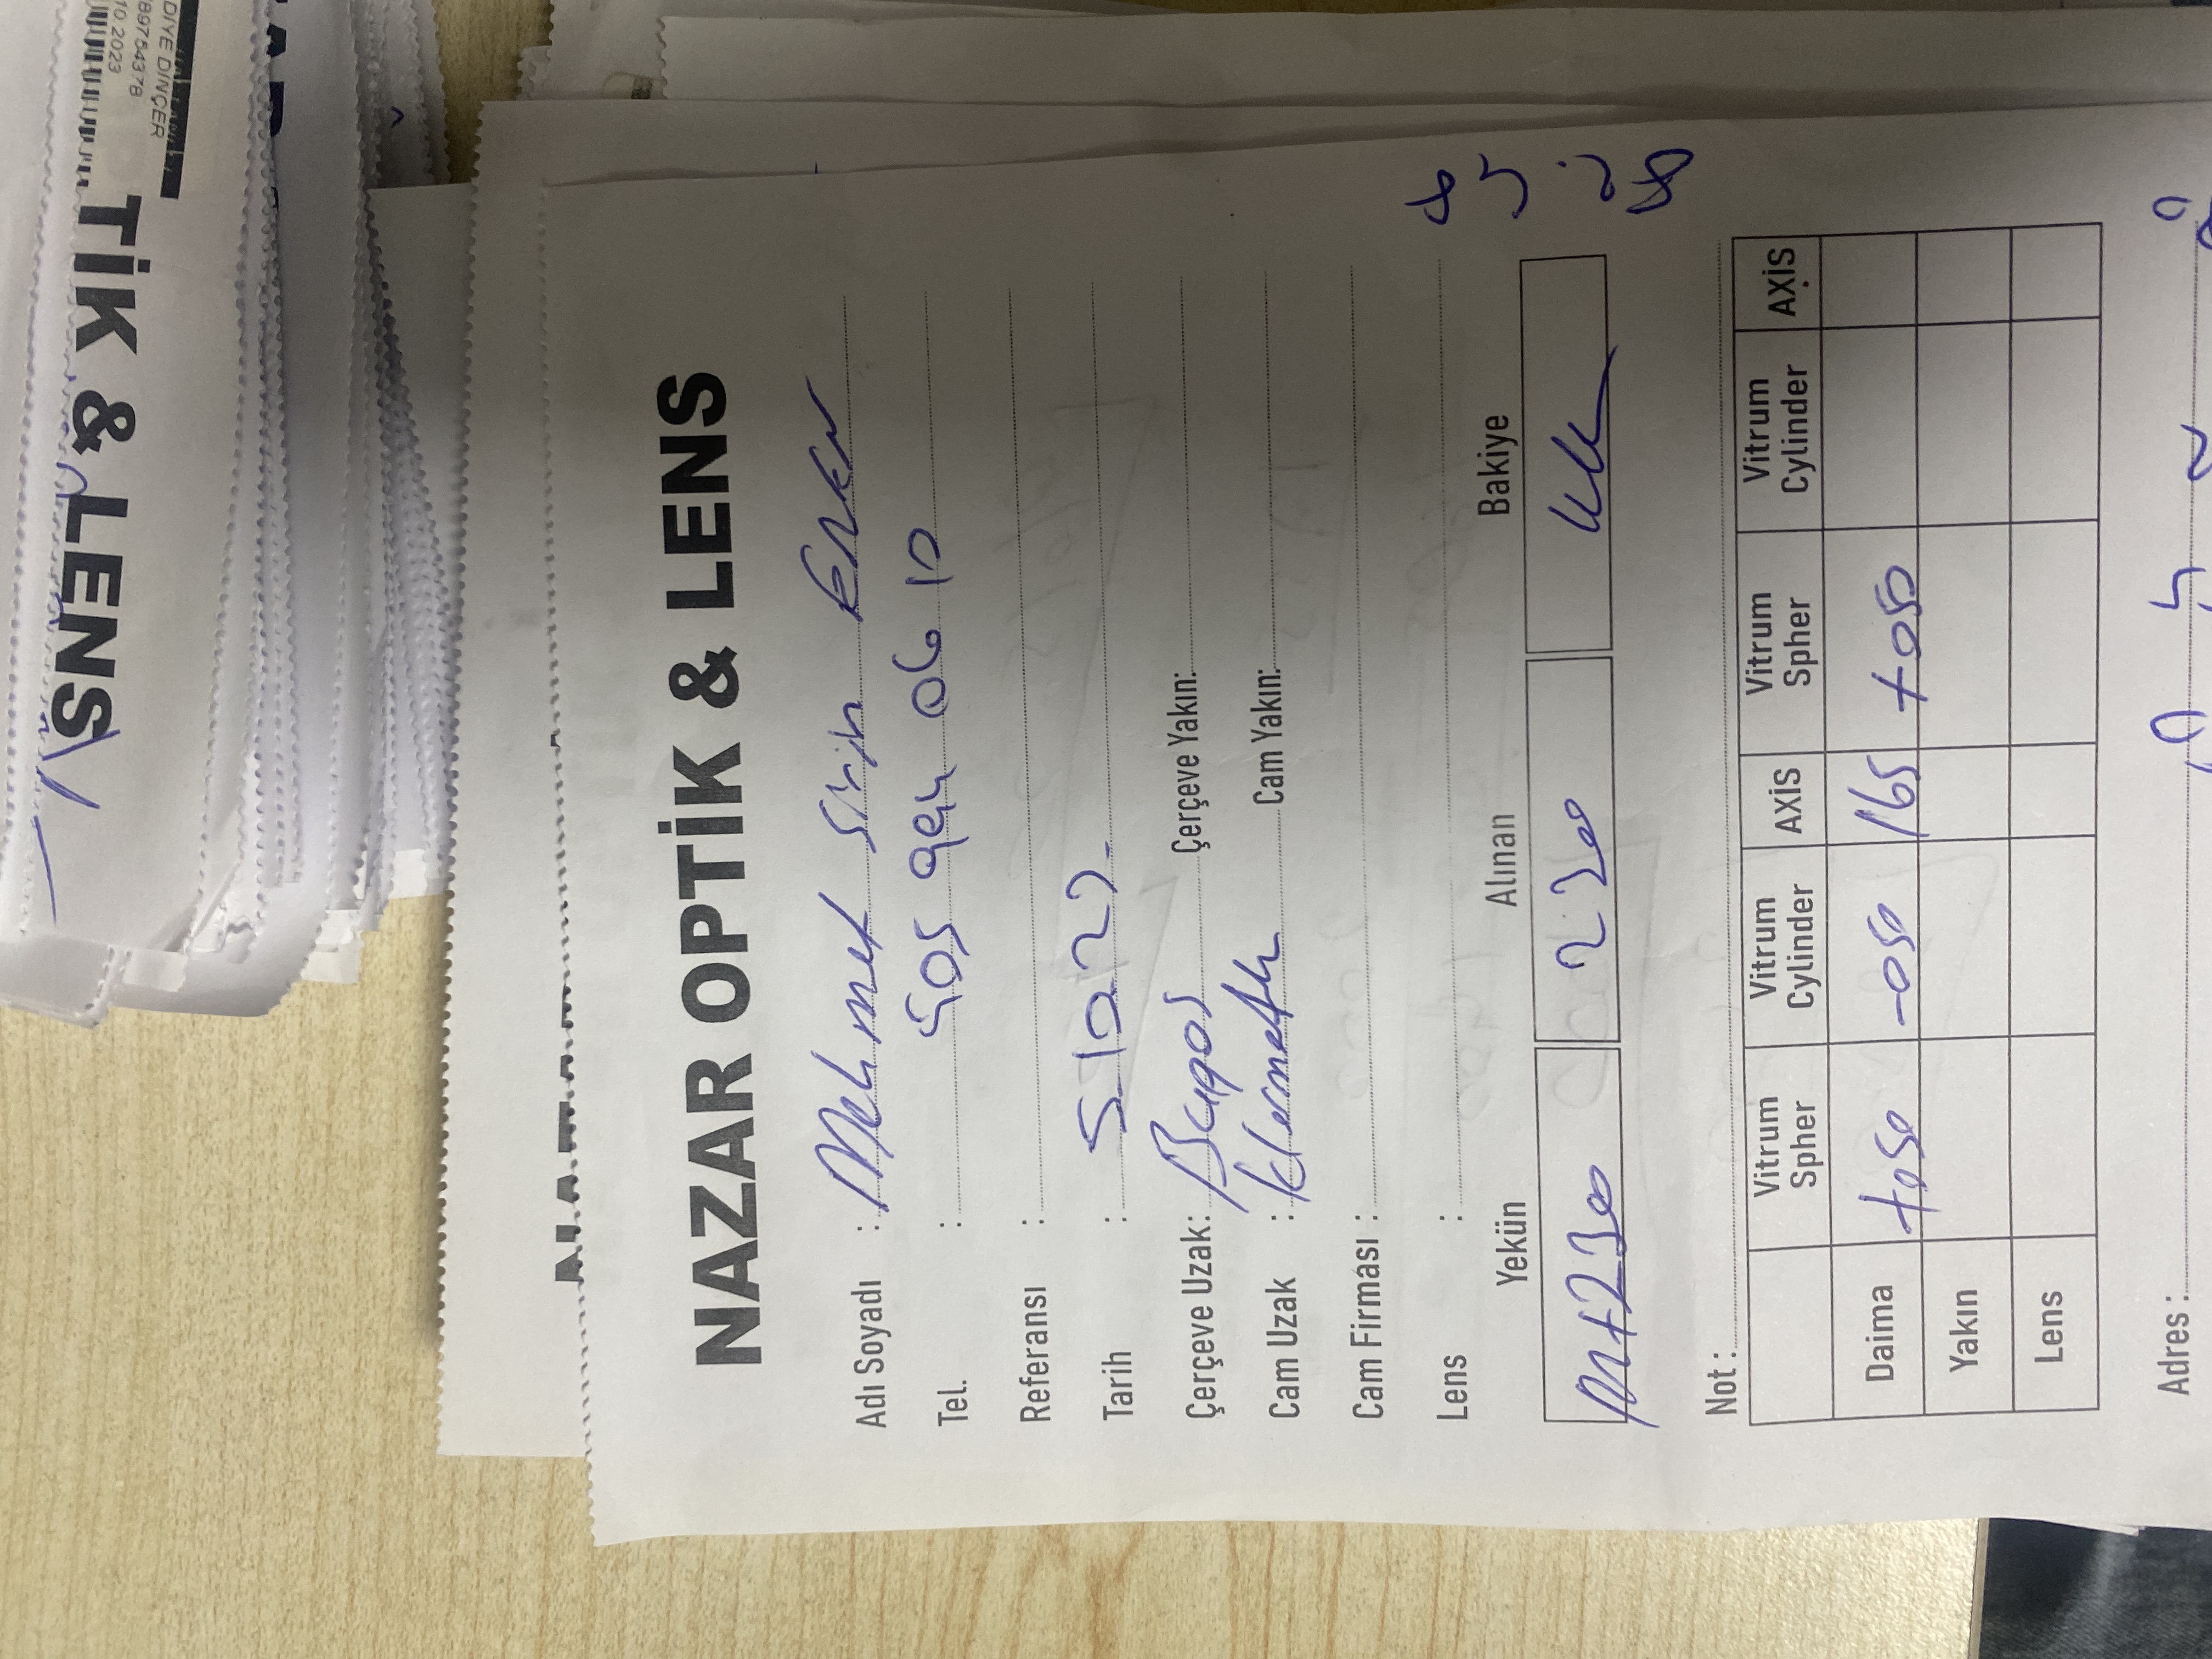 TİK & LENS
10 2023
89754378
DİYE DİNÇER
NAZAR OPTİK & LENS
Adı Soyadı : Mehmet Şirin EREN
Tel. : 505 994 06 10
Referansı :
Tarih : 5.10.23.
Çerçeve Uzak: Çerçeve Yakın:
Cam Uzak : Cam Yakın:
Cam Firması :
Lens :
Yekün Alınan Bakiye
M+2300 2300 KK
Not :
Vitrum Spher Vitrum Cylinder AXİS Vitrum Spher Vitrum Cylinder AXİS
Daima +050 -050 165 +050
Yakın
Lens
Adres :